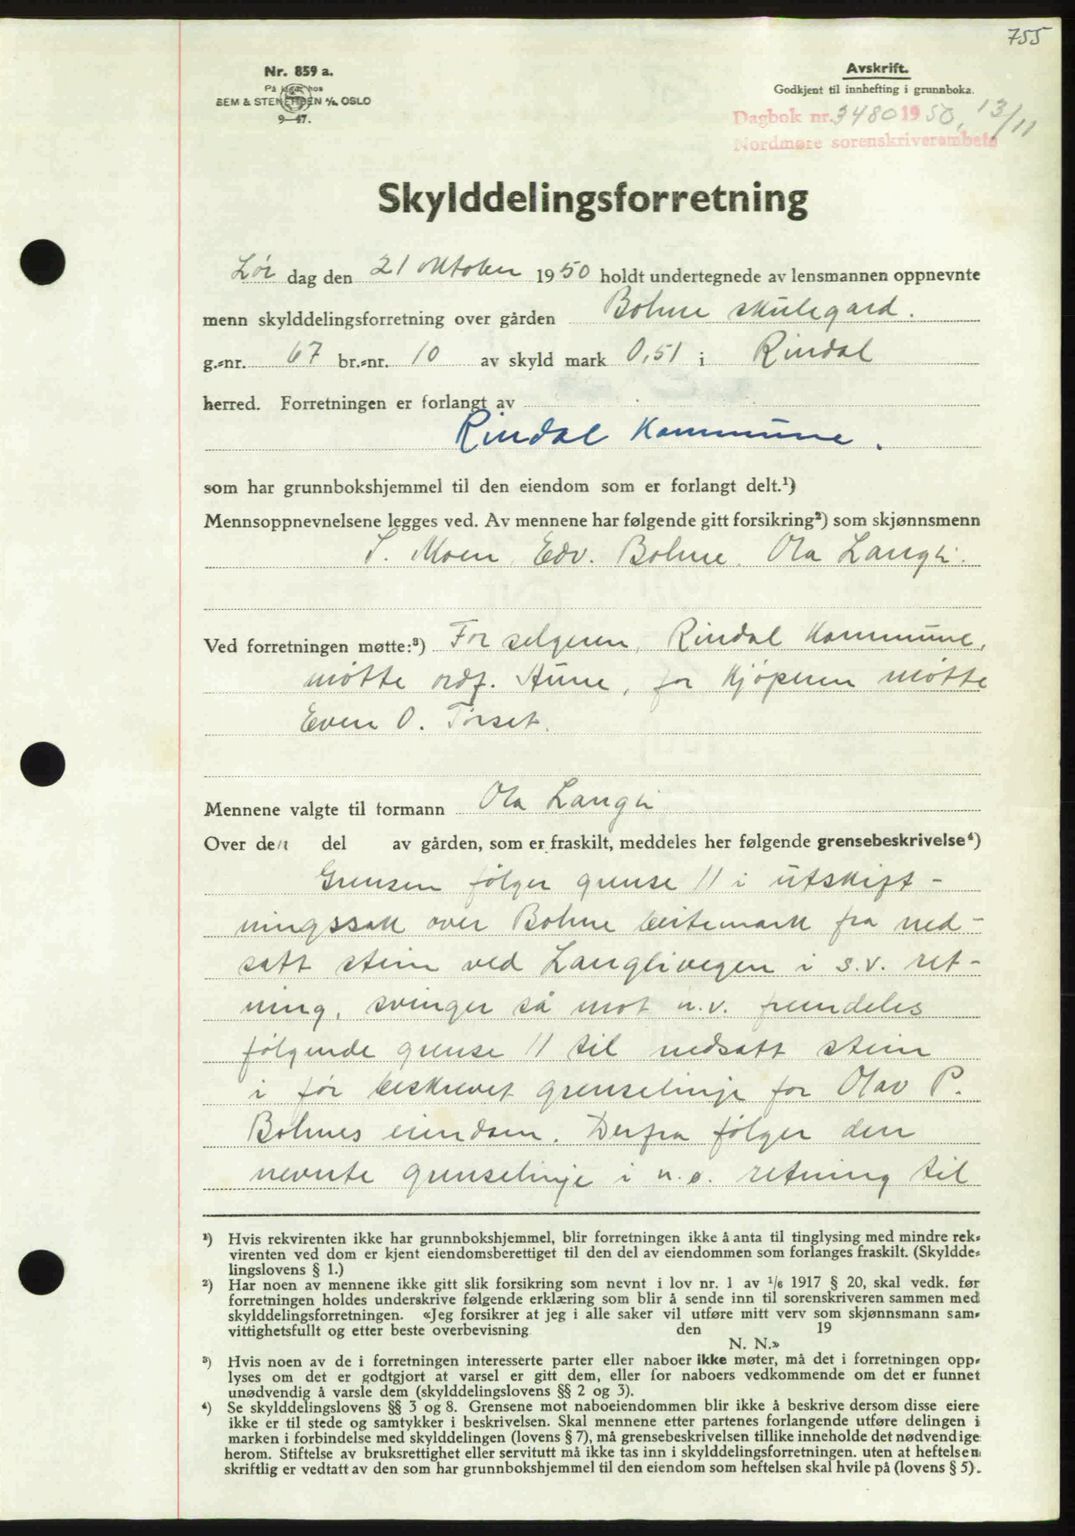 755
Nr. 859 a.
På lager hos
SEM & STENERSEN A/S, OSLO
9—47.
Avskrift.
Godkjent til innhefting i grunnboka.
Dagbok nr. 3480 1950, 13/11
Nordmøre sorenskriverembete
Skylddelingsforretning
Lør dag den 21 oktober 1950 holdt undertegnede av lensmannen oppnevnte
menn skylddelingsforretning over gården Bolme skulegard.
g.-nr. 67 br.-nr. 10 av skyld mark 0,51 i Rindal
herred. Forretningen er forlangt av
Rindal Kommune.
som har grunnbokshjemmel til den eiendom som er forlangt delt.¹)
Mennsoppnevnelsene legges ved. Av mennene har følgende gitt forsikring²) som skjønnsmenn
Moen, Edv. Bolme, Ola Langli.
Ved forretningen møtte:³) For selgeren, Rindal Kommune,
møtte ordf. Aune, for kjøperen møtte
Even O. Tørset.
Mennene valgte til formann Ola Langli
Over den del av gården, som er fraskilt, meddeles her følgende grensebeskrivelse⁴)
Grensen følger grense 11 i utskift-
ningssak over Bolme beitemark fra ned-
satt stein ved Langlivegen i s.v. ret-
ning, svinger så mot n.v. fremdeles
følgende grense 11 til nedsatt stein
i før beskrevet grenselinje for Olav P.
Bolmes eiendom. Derfra følger den
nevnte grenselinje i n.ø. retning til
¹) Hvis rekvirenten ikke har grunnbokshjemmel, blir forretningen ikke å anta til tinglysing med mindre rek-
virenten ved dom er kjent eiendomsberettiget til den del av eiendommen som forlanges fraskilt. (Skyldde-
lingslovens § 1.)
²) Har noen av mennene ikke gitt slik forsikring som nevnt i lov nr. 1 av 1/6 1917 § 20, skal vedk. før
forretningen holdes underskrive følgende erklæring som blir å sende inn til sorenskriveren sammen med
skylddelingsforretningen. «Jeg forsikrer at jeg i alle saker vil utføre mitt verv som skjønnsmann sam-
vittighetsfullt og etter beste overbevisning den 19
N. N.»
³) Hvis noen av de i forretningen interesserte parter eller naboer ikke møter, må det i forretningen opp-
lyses om det er godtgjort at varsel er gitt dem, eller for naboers vedkommende om det er funnet
unødvendig å varsle dem (skylddelingslovens §§ 2 og 3).
⁴) Se skylddelingslovens §§ 3 og 8. Grensene mot naboeiendommen blir ikke å beskrive dersom disse eiere
ikke er til stede og samtykker i beskrivelsen. Skal mennene etter partenes forlangende utføre delingen i
marken i forbindelse med skylddelingen (lovens § 7), må grensebeskrivelsen tillike inneholde det nødvendige
herom. Stiftelse av bruksrettighet eller servitutt må ikke tas inn i skylddelingsforretningen. uten at heftelsen
skriftlig er vedtatt av den som har grunnbokshjemmel til den eiendom som heftelsen skal hvile på (lovens § 5).